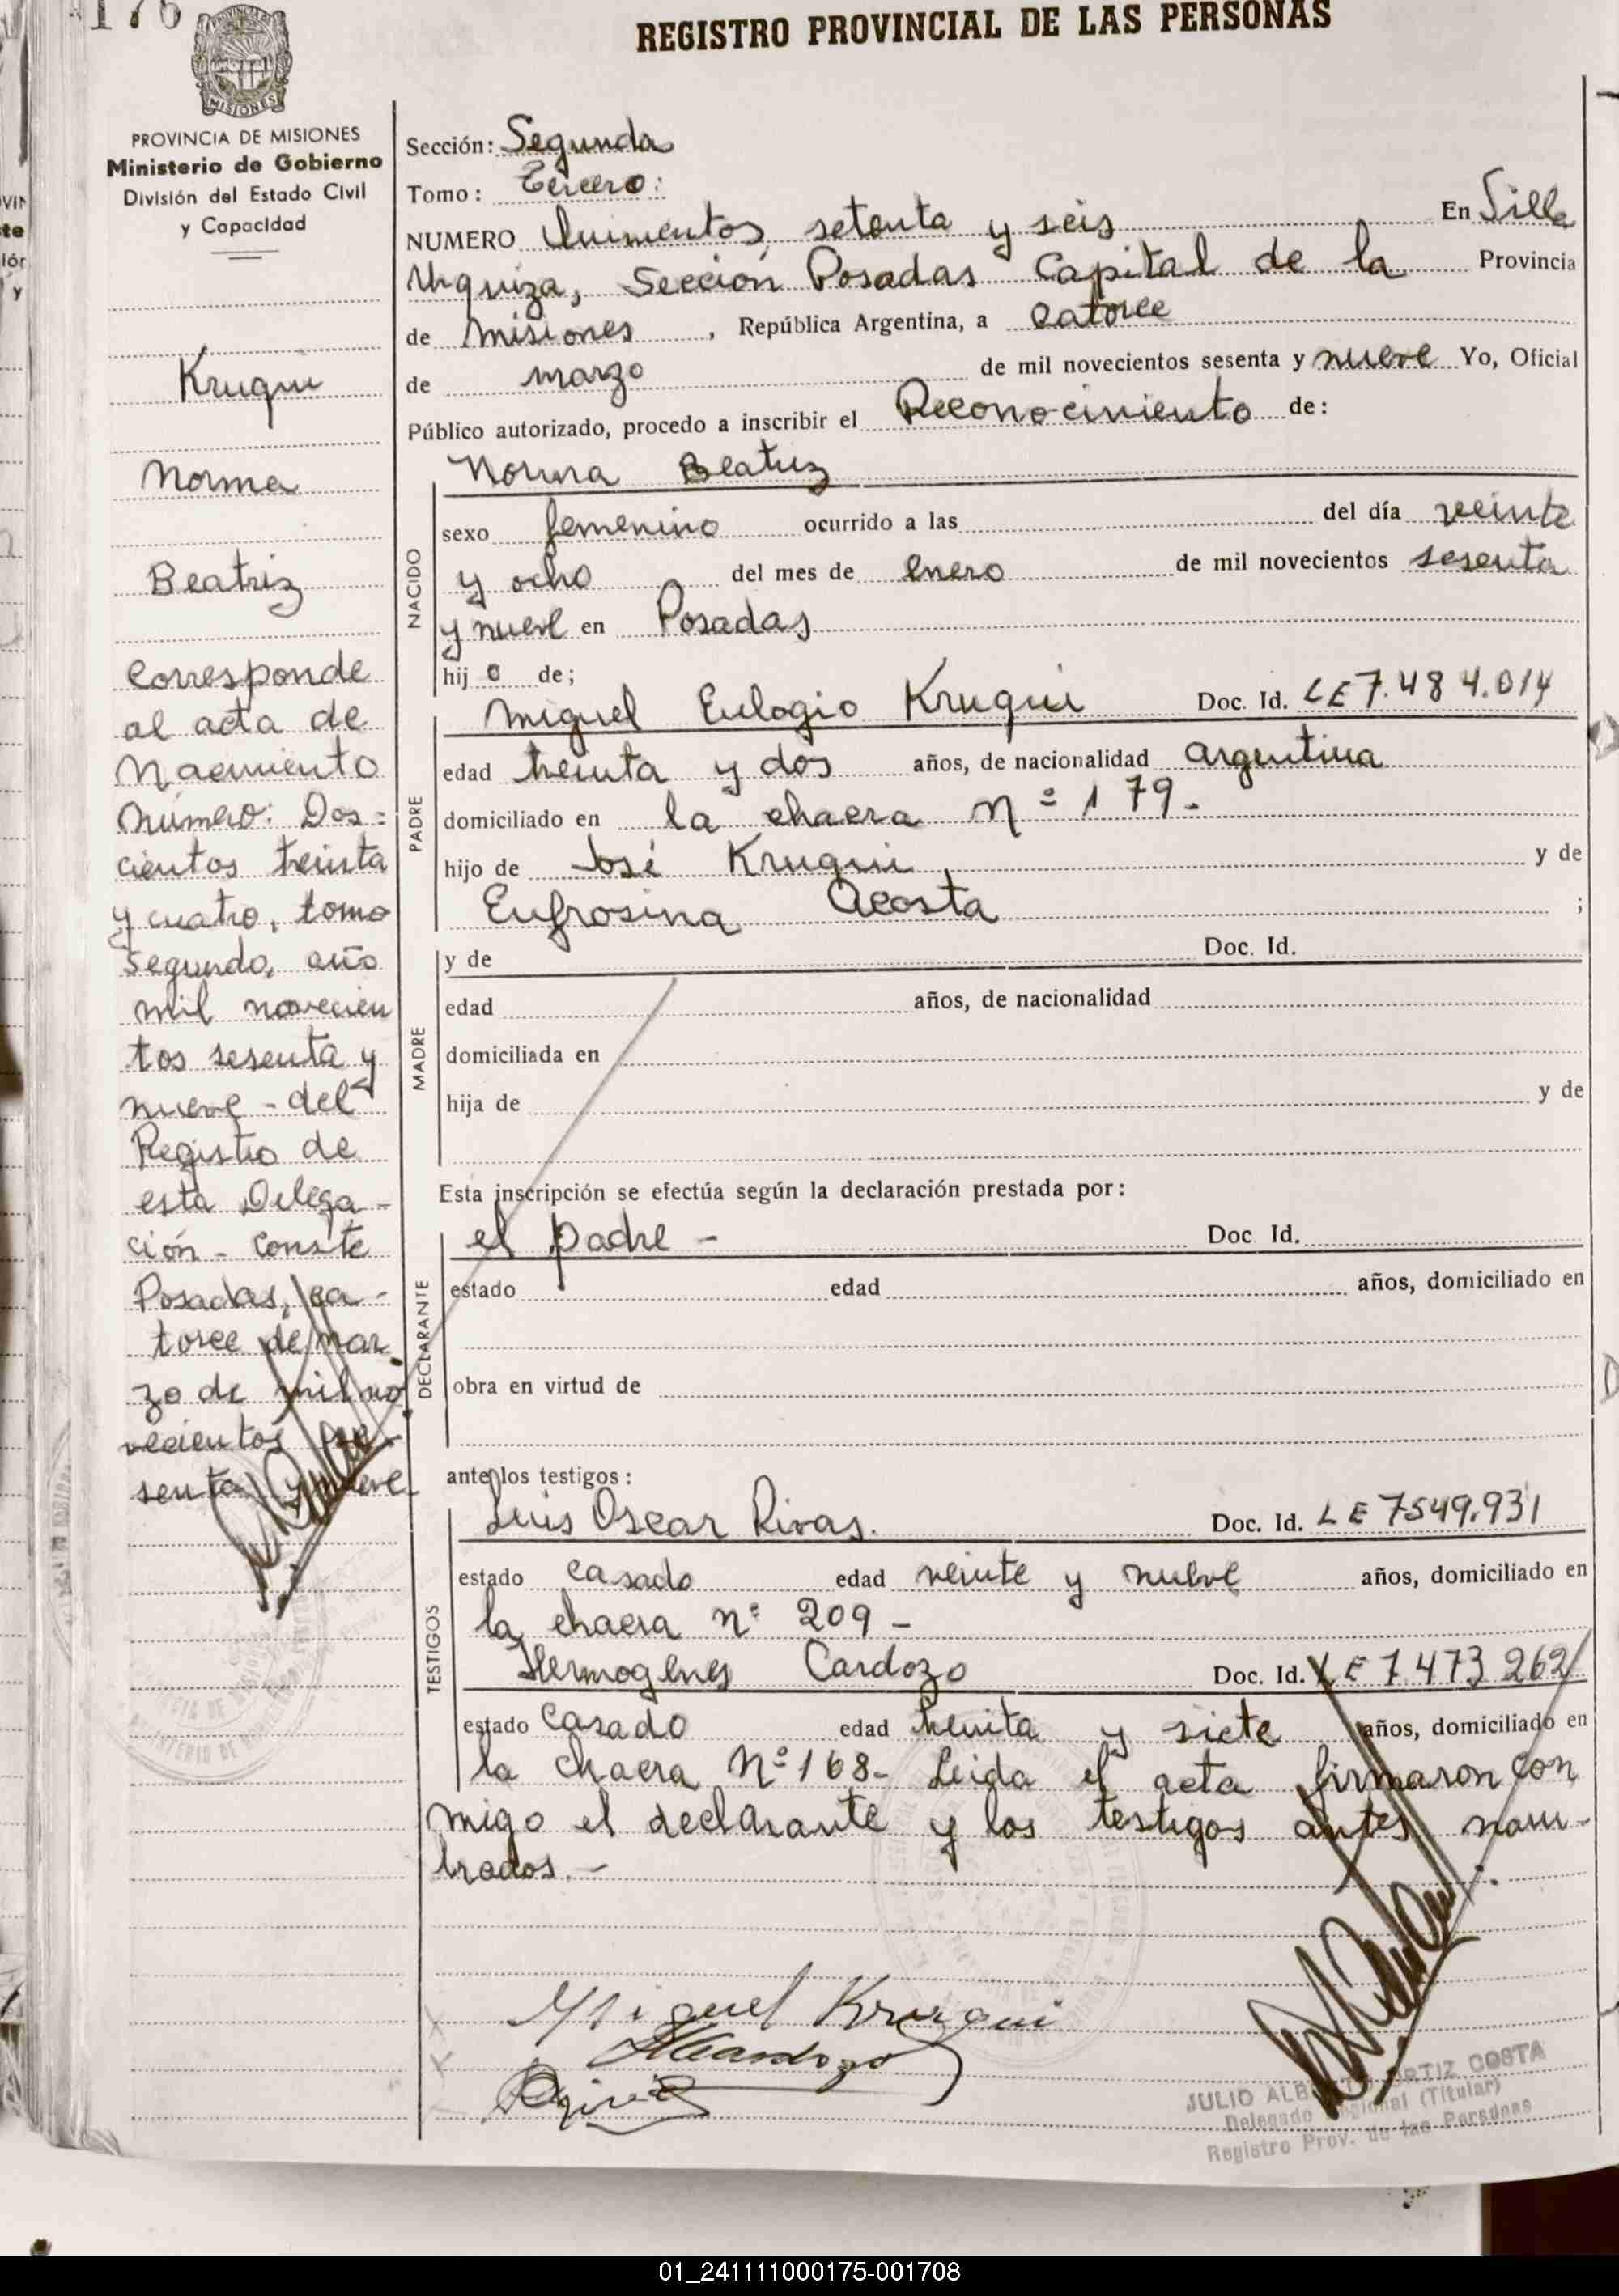 176
REGISTRO PROVINCIAL DE LAS PERSONAS
MISIONES
PROVINCIA DE MISIONES
Ministerio de Gobierno
División del Estado Civil
y Capacidad
Krugui
Norma
Beatriz
Corresponde
al acta de
Nacimiento
número: Dos=
cientos treinta
y cuatro, tomo
segundo, año
mil novecien
tos sesenta y
nueve - del
Registro de
esta Delega-
ción - Conste
Posadas, ca-
torce de mar
zo de mil no
vecientos se-
senta y nueve
Sección: Segunda
Tomo: Tercero:
NUMERO Quinientos setenta y seis En Villa
Urquiza, Sección Posadas Capital de la Provincia
de Misiones, República Argentina, a catorce
de marzo de mil novecientos sesenta y nueve Yo, Oficial
Público autorizado, procedo a inscribir el Reconocimiento de:
Norma Beatriz
NACIDO
sexo femenino ocurrido a las del día veinte
y ocho del mes de enero de mil novecientos sesenta
y nueve en Posadas
hij o de;
PADRE
Miguel Eulogio Krugui Doc. Id. LE 7.484.014
edad treinta y dos años, de nacionalidad argentina
domiciliado en la chacra nº 179.-
hijo de José Krugui y de
Eufrosina Acosta ;
MADRE
y de Doc. Id.
edad años, de nacionalidad
domiciliada en
hija de y de
Esta inscripción se efectúa según la declaración prestada por:
DECLARANTE
el padre - Doc. Id.
estado edad años, domiciliado en
obra en virtud de
ante los testigos:
TESTIGOS
Luis Oscar Rivas. Doc. Id. LE 7549.931
estado casado edad veinte y nueve años, domiciliado en
la chacra nº 209 -
Hermogenes Cardozo Doc. Id. LE 7.473 262
estado casado edad treinta y siete años, domiciliado en
la chacra Nº 168- Leida el acta firmaron con
migo el declarante y los testigos antes nom-
brados.-
Miguel Krugui
HCardozo
JULIO ALBERTO ORTIZ COSTA
Delegado Regional (Titular)
Registro Prov. de las Personas
01_241111000175-001708